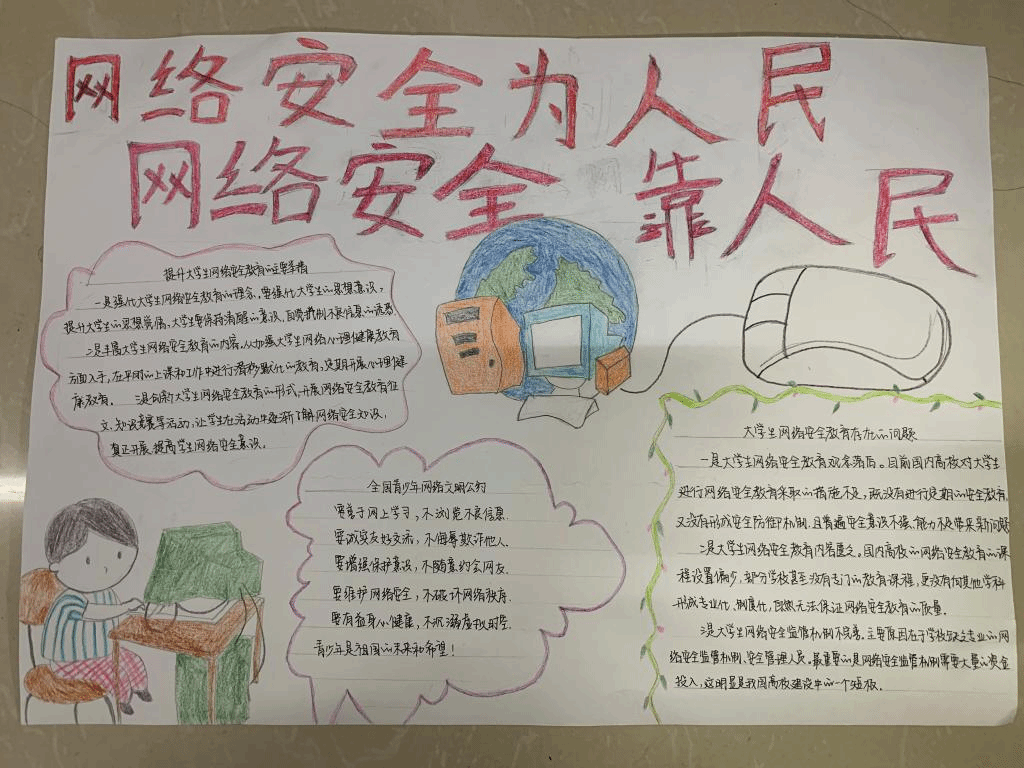 网络安全为人民
网络安全靠人民
提升大学生网络安全教育的主要举措
一是强化大学生网络安全教育的理念，要强化大学生的思想意识，
提升大学生的思想觉悟，大学生要保持清醒的意识，自觉抵制不良信息的诱惑
二是丰富大学生网络安全教育的内容，从加强大学生网络心理健康教育
方面入手，在平时的上课和工作中进行潜移默化的教育，定期开展心理健
康教育。 三是创新大学生网络安全教育的形式，开展网络安全教育征
文，知识竞赛等活动，让学生在活动中逐渐了解网络安全知识，
真正开展提高学生网络安全意识。
全国青少年网络文明公约
要善于网上学习，不浏览不良信息.
要诚实友好交流，不侮辱欺诈他人.
要增强保护意识，不随意约会网友.
要维护网络安全，不破坏网络秩序.
要有益身心健康，不沉溺虚拟时空.
青少年是祖国的未来和希望！
大学生网络安全教育存在的问题
一是大学生网络安全教育观念落后。目前国内高校对大学生
进行网络安全教育采取的措施不足，既没有进行定期的安全教育，
又没有形成安全防御机制，且普遍安全意识不强、能力不足带来新问题
二是大学生网络安全教育内容匮乏。国内高校的网络安全教育的课
程设置偏少，部分学校甚至没有专门的教育课程，更没有同其他学科
形成专业化，制度化，自然无法保证网络安全教育的质量.
三是大学生网络安全监管机制不完善. 主要原因在于学校缺乏专业的网
络安全监管机制，安全管理人员。最重要的是网络安全监管机制需要大量的资金
投入，这明显是我国高校建设中的一个短板.